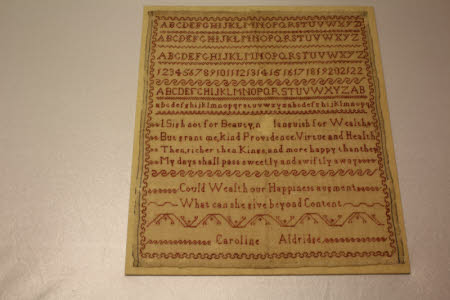 ABCDEFGHIJKLMNOPQRSTUVWXYZ
ABCDEFGHIJKLMNOPQRSTUVWXYZ
ABCDEFGHIJKLMNOPQRSTUVWXYZ
12345678910111213141516171819202122
ABCDEFGHIJKLMNOPQRSTUVWXYZAB
abcdefghijklmnopqrstuvwxyzabcdefghijklmnopq
I Sigh not for Beauty, n languish for Wealth
But grant me, Kind Providence, Virtue and Health
Then, richer then Kings, and more happy than they
My days shall pass sweetly and swiftly away
Could Wealth our Happiness augment
What can she give beyond Content
Caroline Aldridge